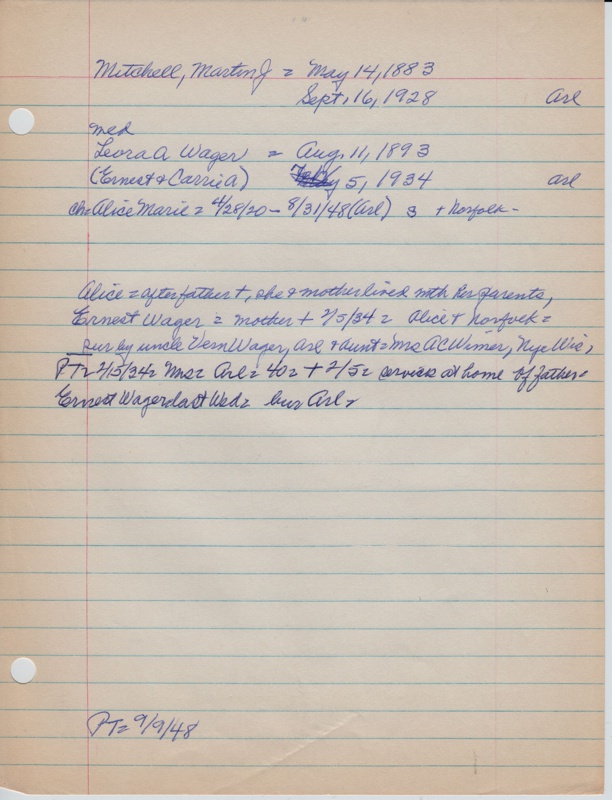 Mitchell, Martin J = May 14, 1883
Sept, 16, 1928 Arl
med
Leora A Wager = Aug. 11, 1893
(Ernest + Carrie A) Feb 5, 1934 arl
ch=Alice Marie = 4/28/20 - 8/31/48 (Arl) 3 + Norfolk -
Alice = after father +, she & mother lived with her parents,
Ernest Wager = mother + 2/5/34 = Alice + Norfolk =
sur by uncle Vern Wager, arl & aunt = Mrs AC Wimer, Nye Wis,
PT= 2/15/34= Mrs= Arl= 40= + 2/5= services at home of father=
Ernest Wager last Wed= bur Arl=
PT= 9/9/48